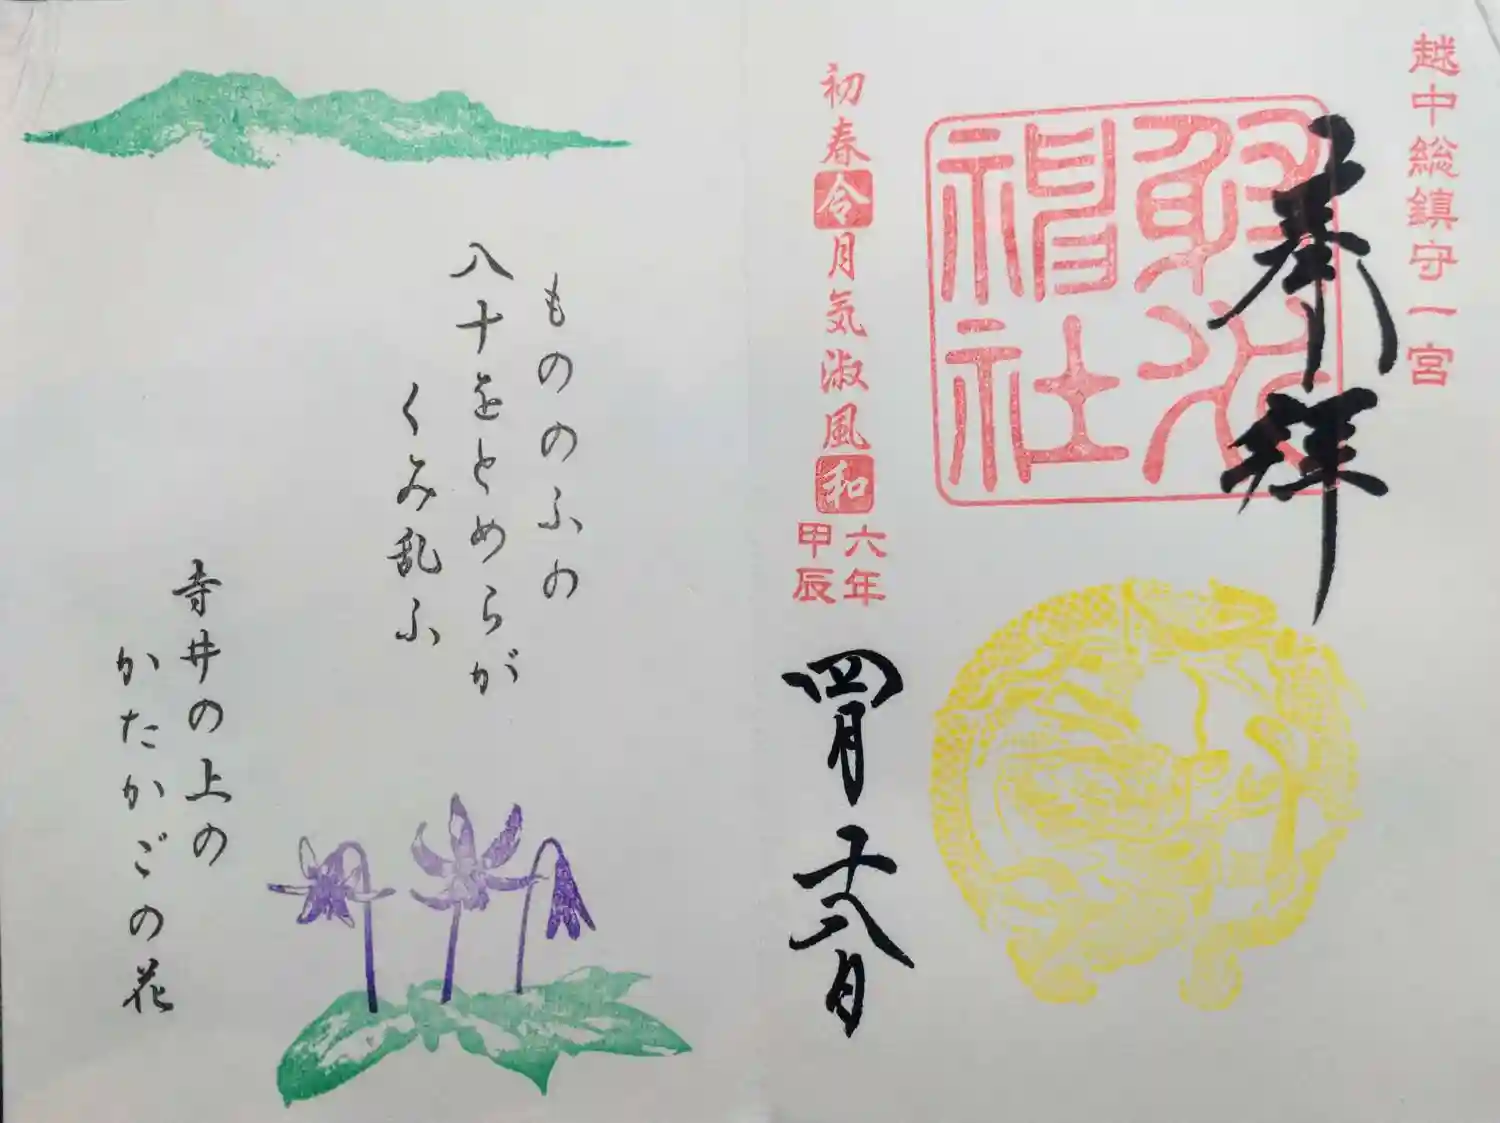 越中総鎮守一宮
奉拝
射水
神社
初春令月気淑風和
六年
甲辰
四月十六日
もののふの
八十をとめらが
くみ乱ふ
寺井の上の
かたかごの花